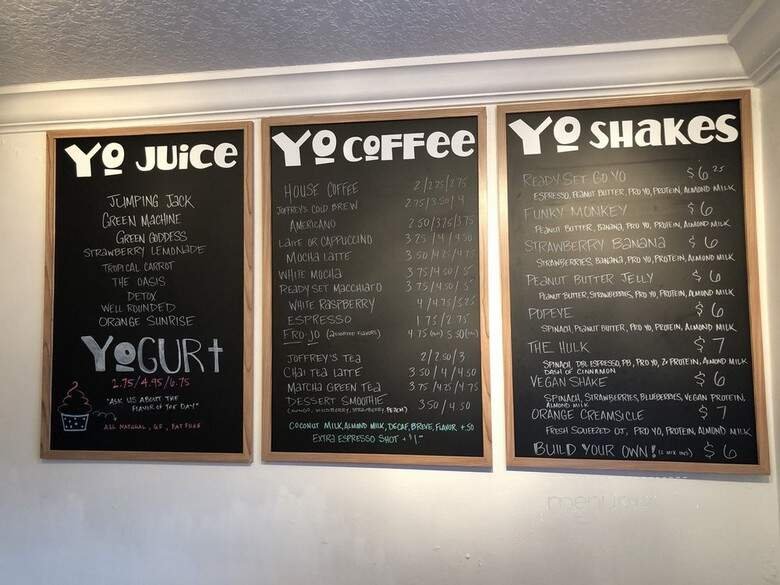 Yo Juice
Jumping Jack
Green Machine
Green Goddess
Strawberry Lemonade
Tropical Carrot
The Oasis
Detox
Well Rounded
Orange Sunrise
Yogurt
2.75/4.95/6.75
"Ask us about the
flavor of the day"
All Natural, GF, Fat Free
Yo Coffee
House Coffee 2/2.25/2.75
Joffrey's Cold Brew 2.75/3.50/4
Americano 2.50/3.25/3.75
Latte or Cappuccino 3.25/4/4.50
Mocha Latte 3.50/4.25/4.75
White Mocha 3.75/4.50/5
Ready Set Macchiato 3.75/4.50/5
White Raspberry 4/4.75/5.25
Espresso 1.75/2.75
Fro-Jo (assorted flavors) 4.75 5.50
Joffrey's Tea 2/2.50/3
Chai Tea Latte 3.50/4/4.50
Matcha Green Tea 3.75/4.25/4.75
Dessert Smoothie 3.50/4.50
(mango, wildberry, strawberry, peach)
Coconut Milk, Almond Milk, Decaf, Breve, Flavor +.50
Extra Espresso Shot +$1
Yo Shakes
Ready Set Go Yo $6.25
Espresso, Peanut Butter, Pro Yo, Protein, Almond Milk
Funky Monkey $6
Peanut Butter, Banana, Pro Yo, Protein, Almond Milk
Strawberry Banana $6
Strawberries, Banana, Pro Yo, Protein, Almond Milk
Peanut Butter Jelly $6
Peanut Butter, Strawberries, Pro Yo, Protein, Almond Milk
Popeye $6
Spinach, Peanut Butter, Pro Yo, Protein, Almond Milk
The Hulk $7
Spinach, Dbl Espresso, PB, Pro Yo, 2x Protein, Almond Milk
Dash of Cinnamon
Vegan Shake $6
Spinach, Strawberries, Blueberries, Vegan Protein,
Almond Milk
Orange Creamsicle $7
Fresh Squeezed OJ, Pro Yo, Protein, Almond Milk
Build Your Own! (2 mix ins) $6